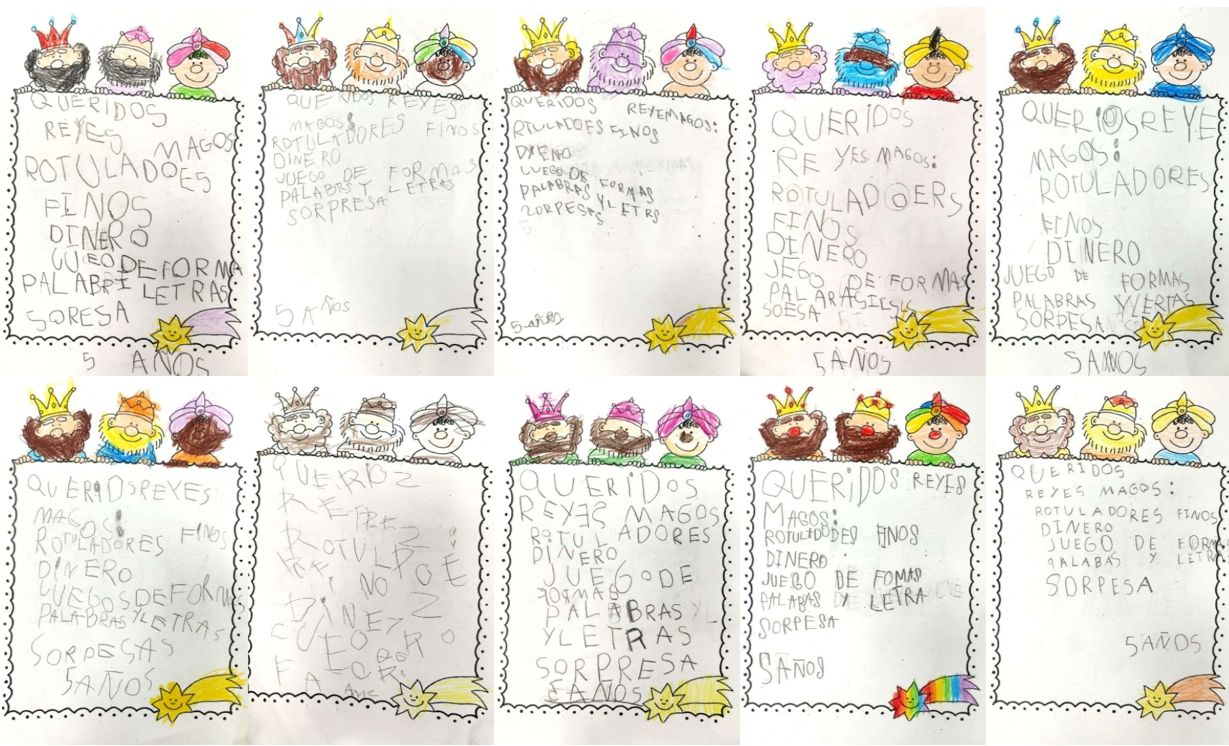 QUERIDOS
REYES
MAGOS
ROTULADOES
FINOS
DINERO
JUEO DE FORMA
PALABRI LETRAS
SORESA
5 AÑOS
QUERIDOS REYES
MAGOS:
ROTULADORES FINOS
DINERO
JUEGO DE FORMAS
PALABAS Y LETRAS
SORPRESA
5 AÑOS
QUERIDOS REYEMAGOS:
RTULADOES FINOS
DIENO
JUEGO DE FORMAS
PALABRAS YLETRS
SORPESAS
5 AÑOS
QUERIDOS
RE YES MAGOS:
ROTULADOERS
FINOS
DINERO
JEGO DE FORMAS
SOESA
5AÑOS
QUERIOSREYE
MAGOS:
ROTULADORES
FINOS
DINERO
JUEGO DE FORMAS
PALABRAS YLERTAS
SORPESA
5AÑOS
QUERIDSREYES
MAGOS:
ROTULADORES FINOS
DINERO
JUEGOSDEFORMAS
PALABRASYLETRAS
SORPESAS
5AÑOS
NO
QUERIDOS
REYES MAGOS
ROTULADORES
DINERO
JUEGODE
FORMAS
PALABRASY
YLETRAS
SORPRESA
5AÑOS
QUERIDOS REYES
MAGOS:
FINOS
DINERO
JUEGO DE FOMAS
PALABAS Y LETRA
SORPESA
5AÑOS
QUERIDOS
REYES MAGOS:
ROTULADORES FINOS
DINERO
JUEGO DE FORMA
PALABAS Y LETRA
SORPESA
5AÑOS